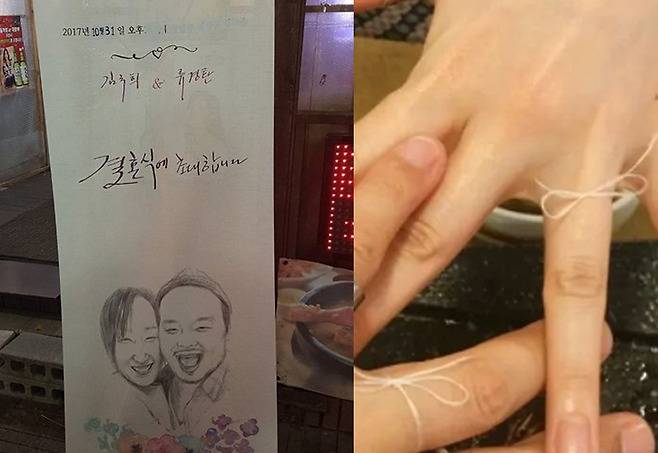 2017년 10월 31일 오후
김주희 & 류경탄
결혼식에 초대합니다